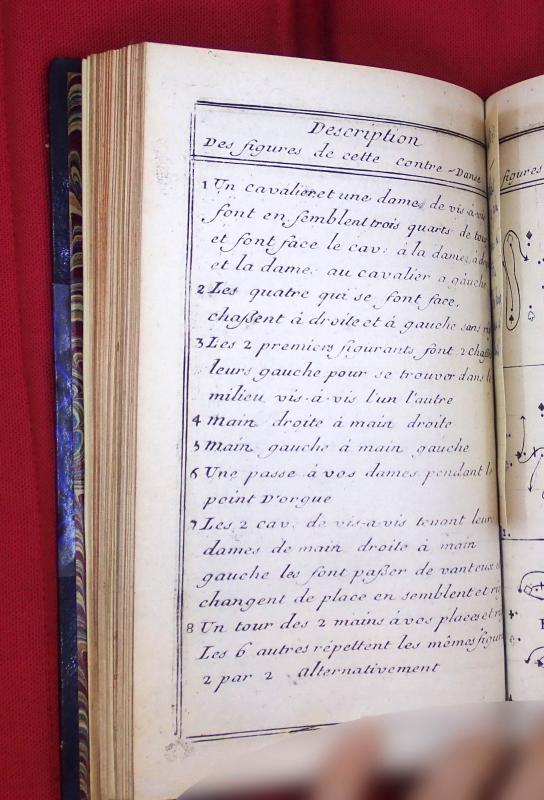 Description
Des figures de cette contre-Danse
figures
1 Un cavalier et une dame de vis-à-vis
font en semblent trois quarts de tour
et font face le cav: à la dame à
et la dame: au cavalier a gauche
2 Les quatre qui se font face,
chaßent à droite et à gauche sans
3 Les 2 premiers figurants font 2
leurs gauche pour se trouver dans le
milieu vis-à-vis l'un l'autre
4 main droite à main droite
5 main gauche à main gauche
6 Une passe à vos dames pendant le
point D'orgue
7 Les 2 cav. de vis-a-vis tenant leurs
dames de main droite à main
gauche les font paßer de vant eux
changent de place en semblent et
8 Un tour des 2 mains à vos places et
Les 6 autres répettent les mêmes figures
2 par 2 alternativement